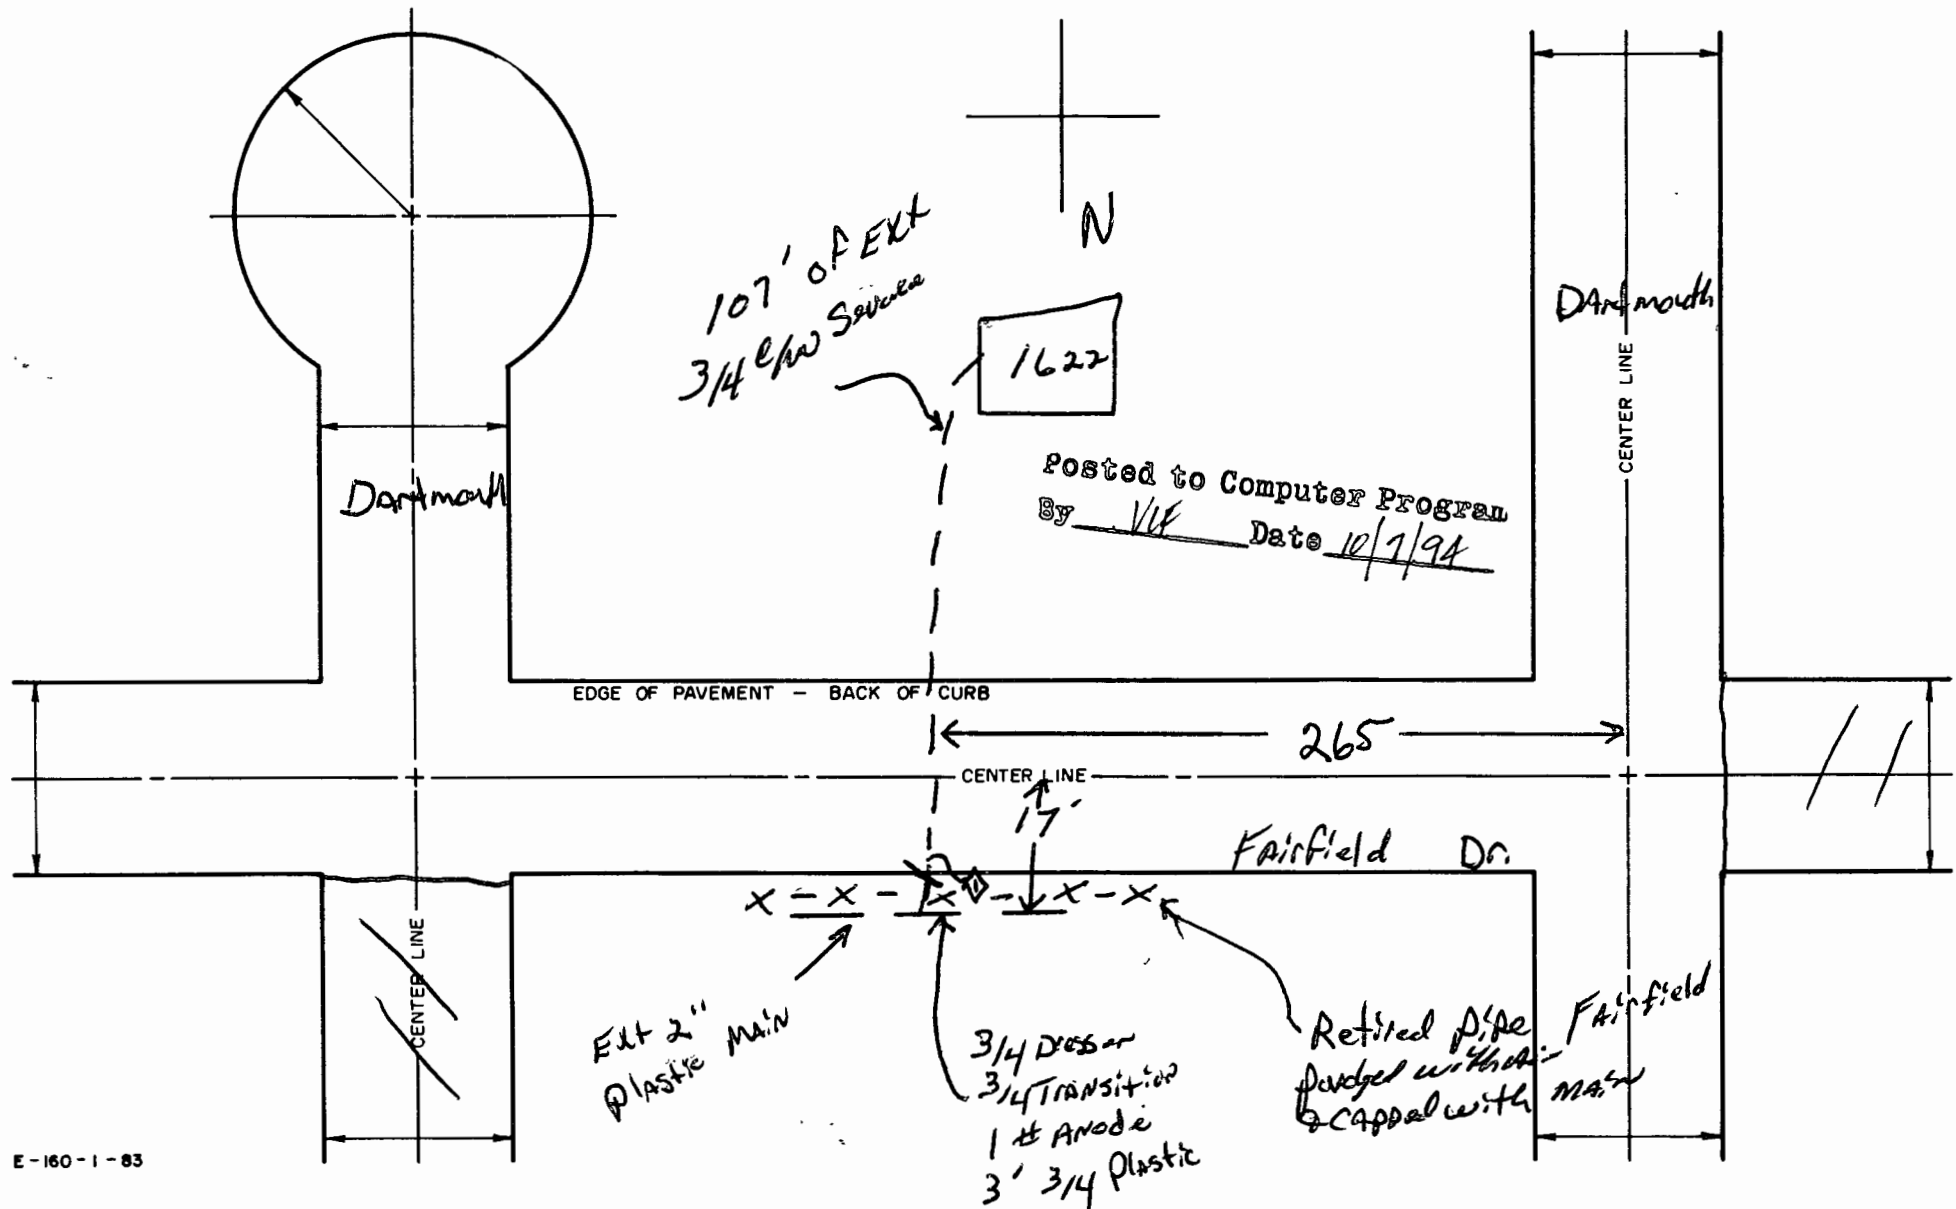 N
107' of Ext
3/4 c/w Service
1622
Dartmouth
CENTER LINE
Dartmouth
Posted to Computer Program
By Date 10/7/94
EDGE OF PAVEMENT - BACK OF CURB
265
CENTER LINE
17'
Fairfield Dr.
x - x - x - x - x
CENTER LINE
Ext 2"
Plastic Main
3/4 Dresser
3/4 Transition
1 # Anode
3' 3/4 Plastic
Retired pipe
purged with air
& capped with main
Fairfield
E-160-1-83